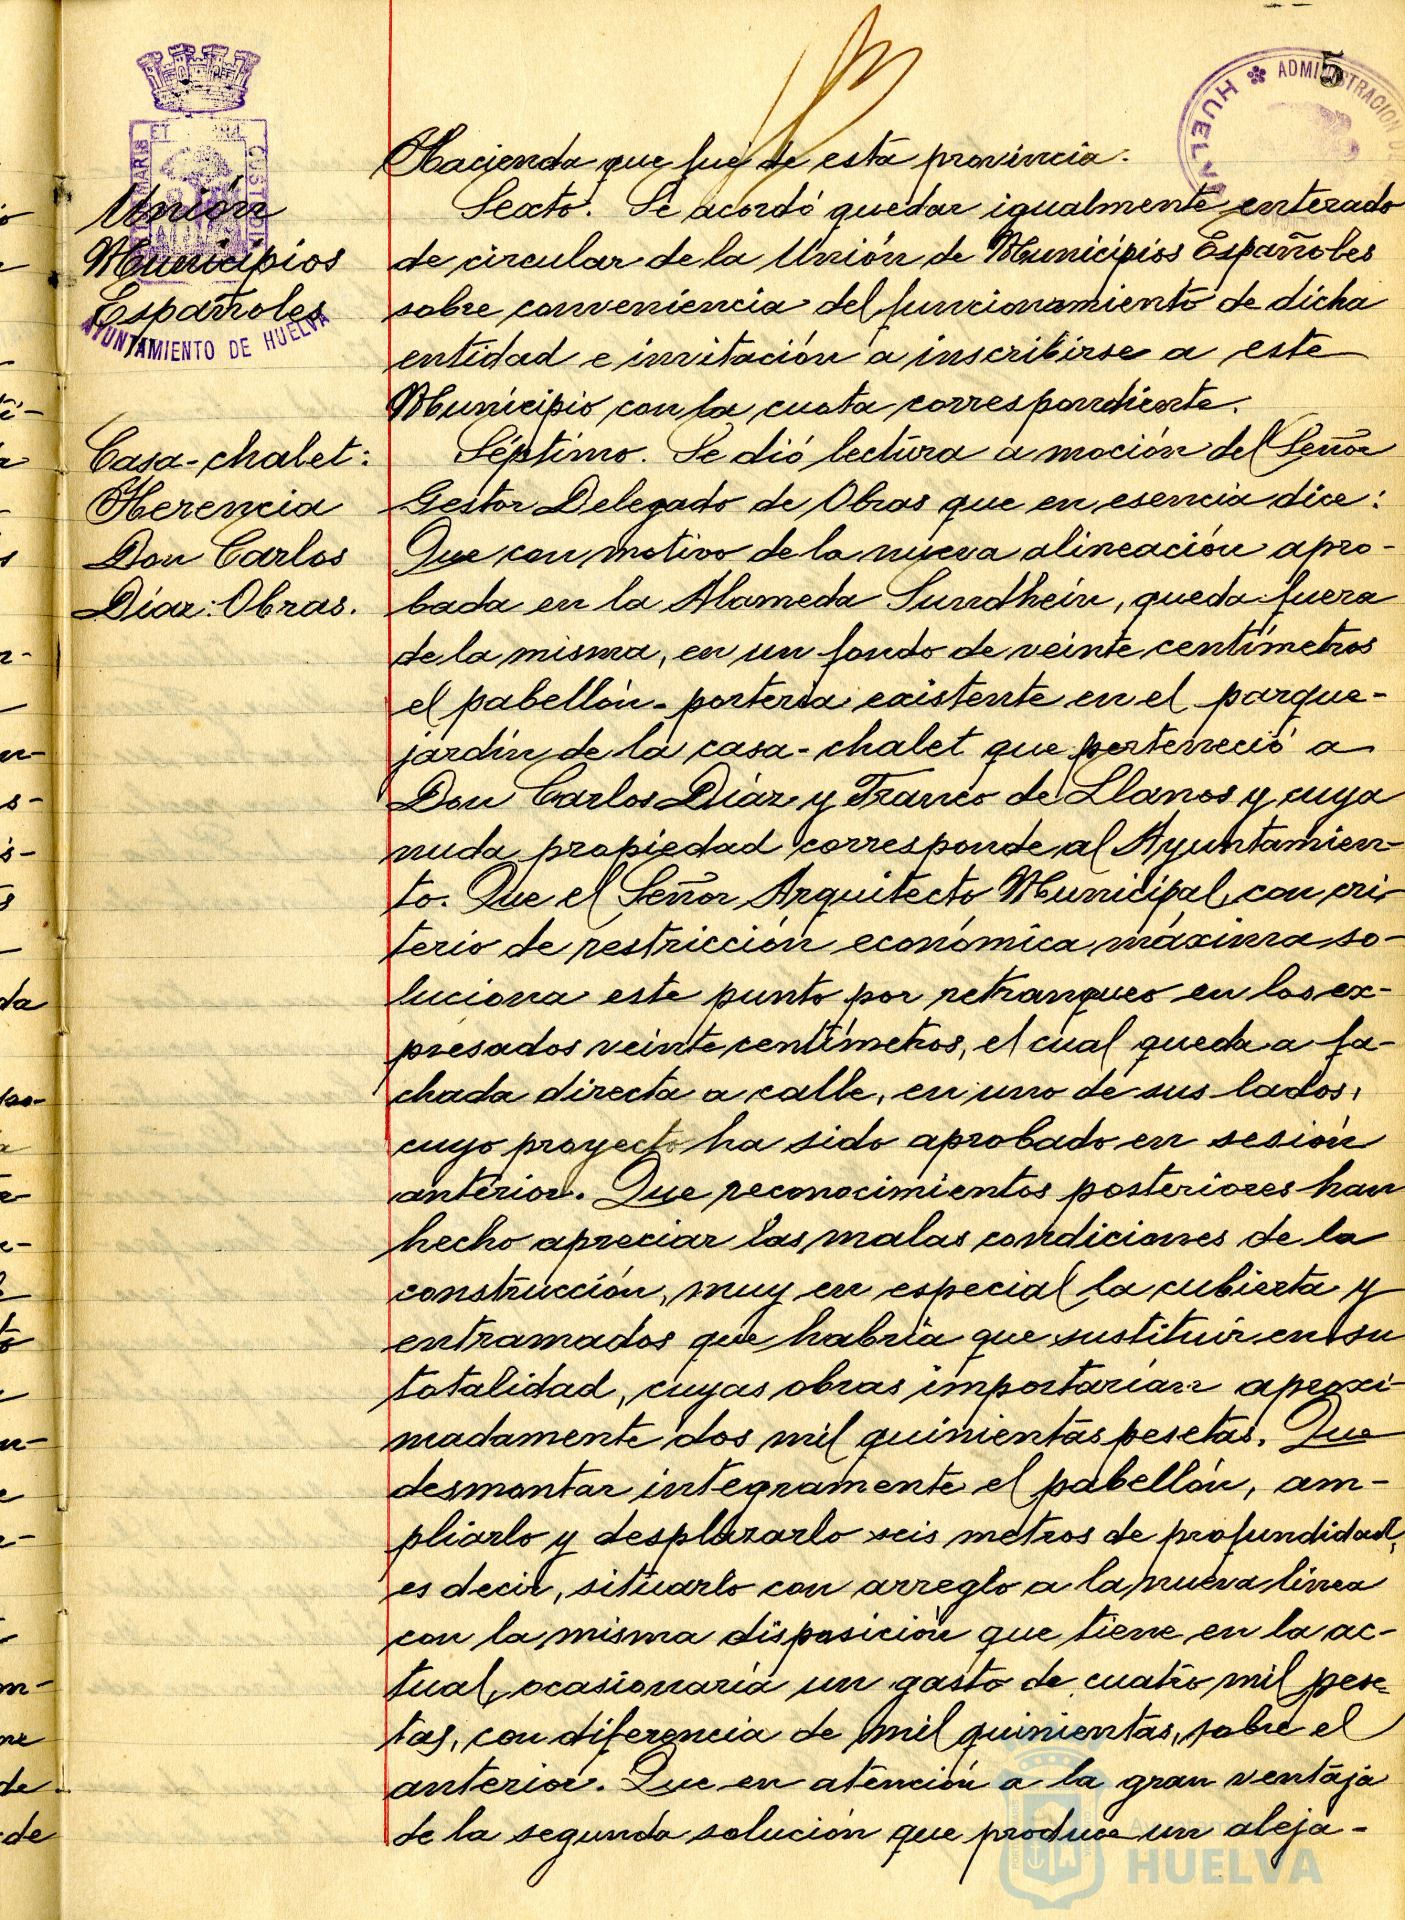 5
ADMINISTRACION
HUELVA
ET
MARIS
CUSTODI
AYUNTAMIENTO DE HUELVA
Unión
Municipios
Españoles
Hacienda que fué de esta provincia.
Sexto. Se acordó quedar igualmente enterado
de circular de la Unión de Municipios Españoles
sobre conveniencia del funcionamiento de dicha
entidad e invitación a inscribirse a este
Municipio con la cuota correspondiente.
Casa-chalet:
Herencia
Don Carlos
Díaz: Obras.
Séptimo. Se dió lectura a moción del Señor
Gestor Delegado de Obras que en esencia dice:
Que con motivo de la nueva alineación apro-
bada en la Alameda Sundhein, queda fuera
de la misma, en un fondo de veinte centímetros
el pabellón-portería existente en el parque-
jardín de la casa-chalet que perteneció a
Don Carlos Díaz y Franco de Llanos y cuya
nuda propiedad corresponde al Ayuntamien-
to. Que el Señor Arquitecto Municipal, con cri-
terio de restricción económica máxima so-
luciona este punto por retranqueo en los ex-
presados veinte centímetros, el cual queda a fa-
chada directa a calle, en uno de sus lados,
cuyo proyecto ha sido aprobado en sesión
anterior. Que reconocimientos posteriores han
hecho apreciar las malas condiciones de la
construcción, muy en especial la cubierta y
entramados que habría que sustituir en su
totalidad, cuyas obras importarían aproxi-
madamente dos mil quinientas pesetas. Que
desmontar integramente el pabellón, am-
pliarlo y desplazarlo seis metros de profundidad,
es decir, situarlo con arreglo a la nueva línea
con la misma disposición que tiene en la ac-
tual, ocasionaría un gasto de cuatro mil pese-
tas, con diferencia de mil quinientas, sobre el
anterior. Que en atención a la gran ventaja
de la segunda solución que produce un aleja-
HUELVA